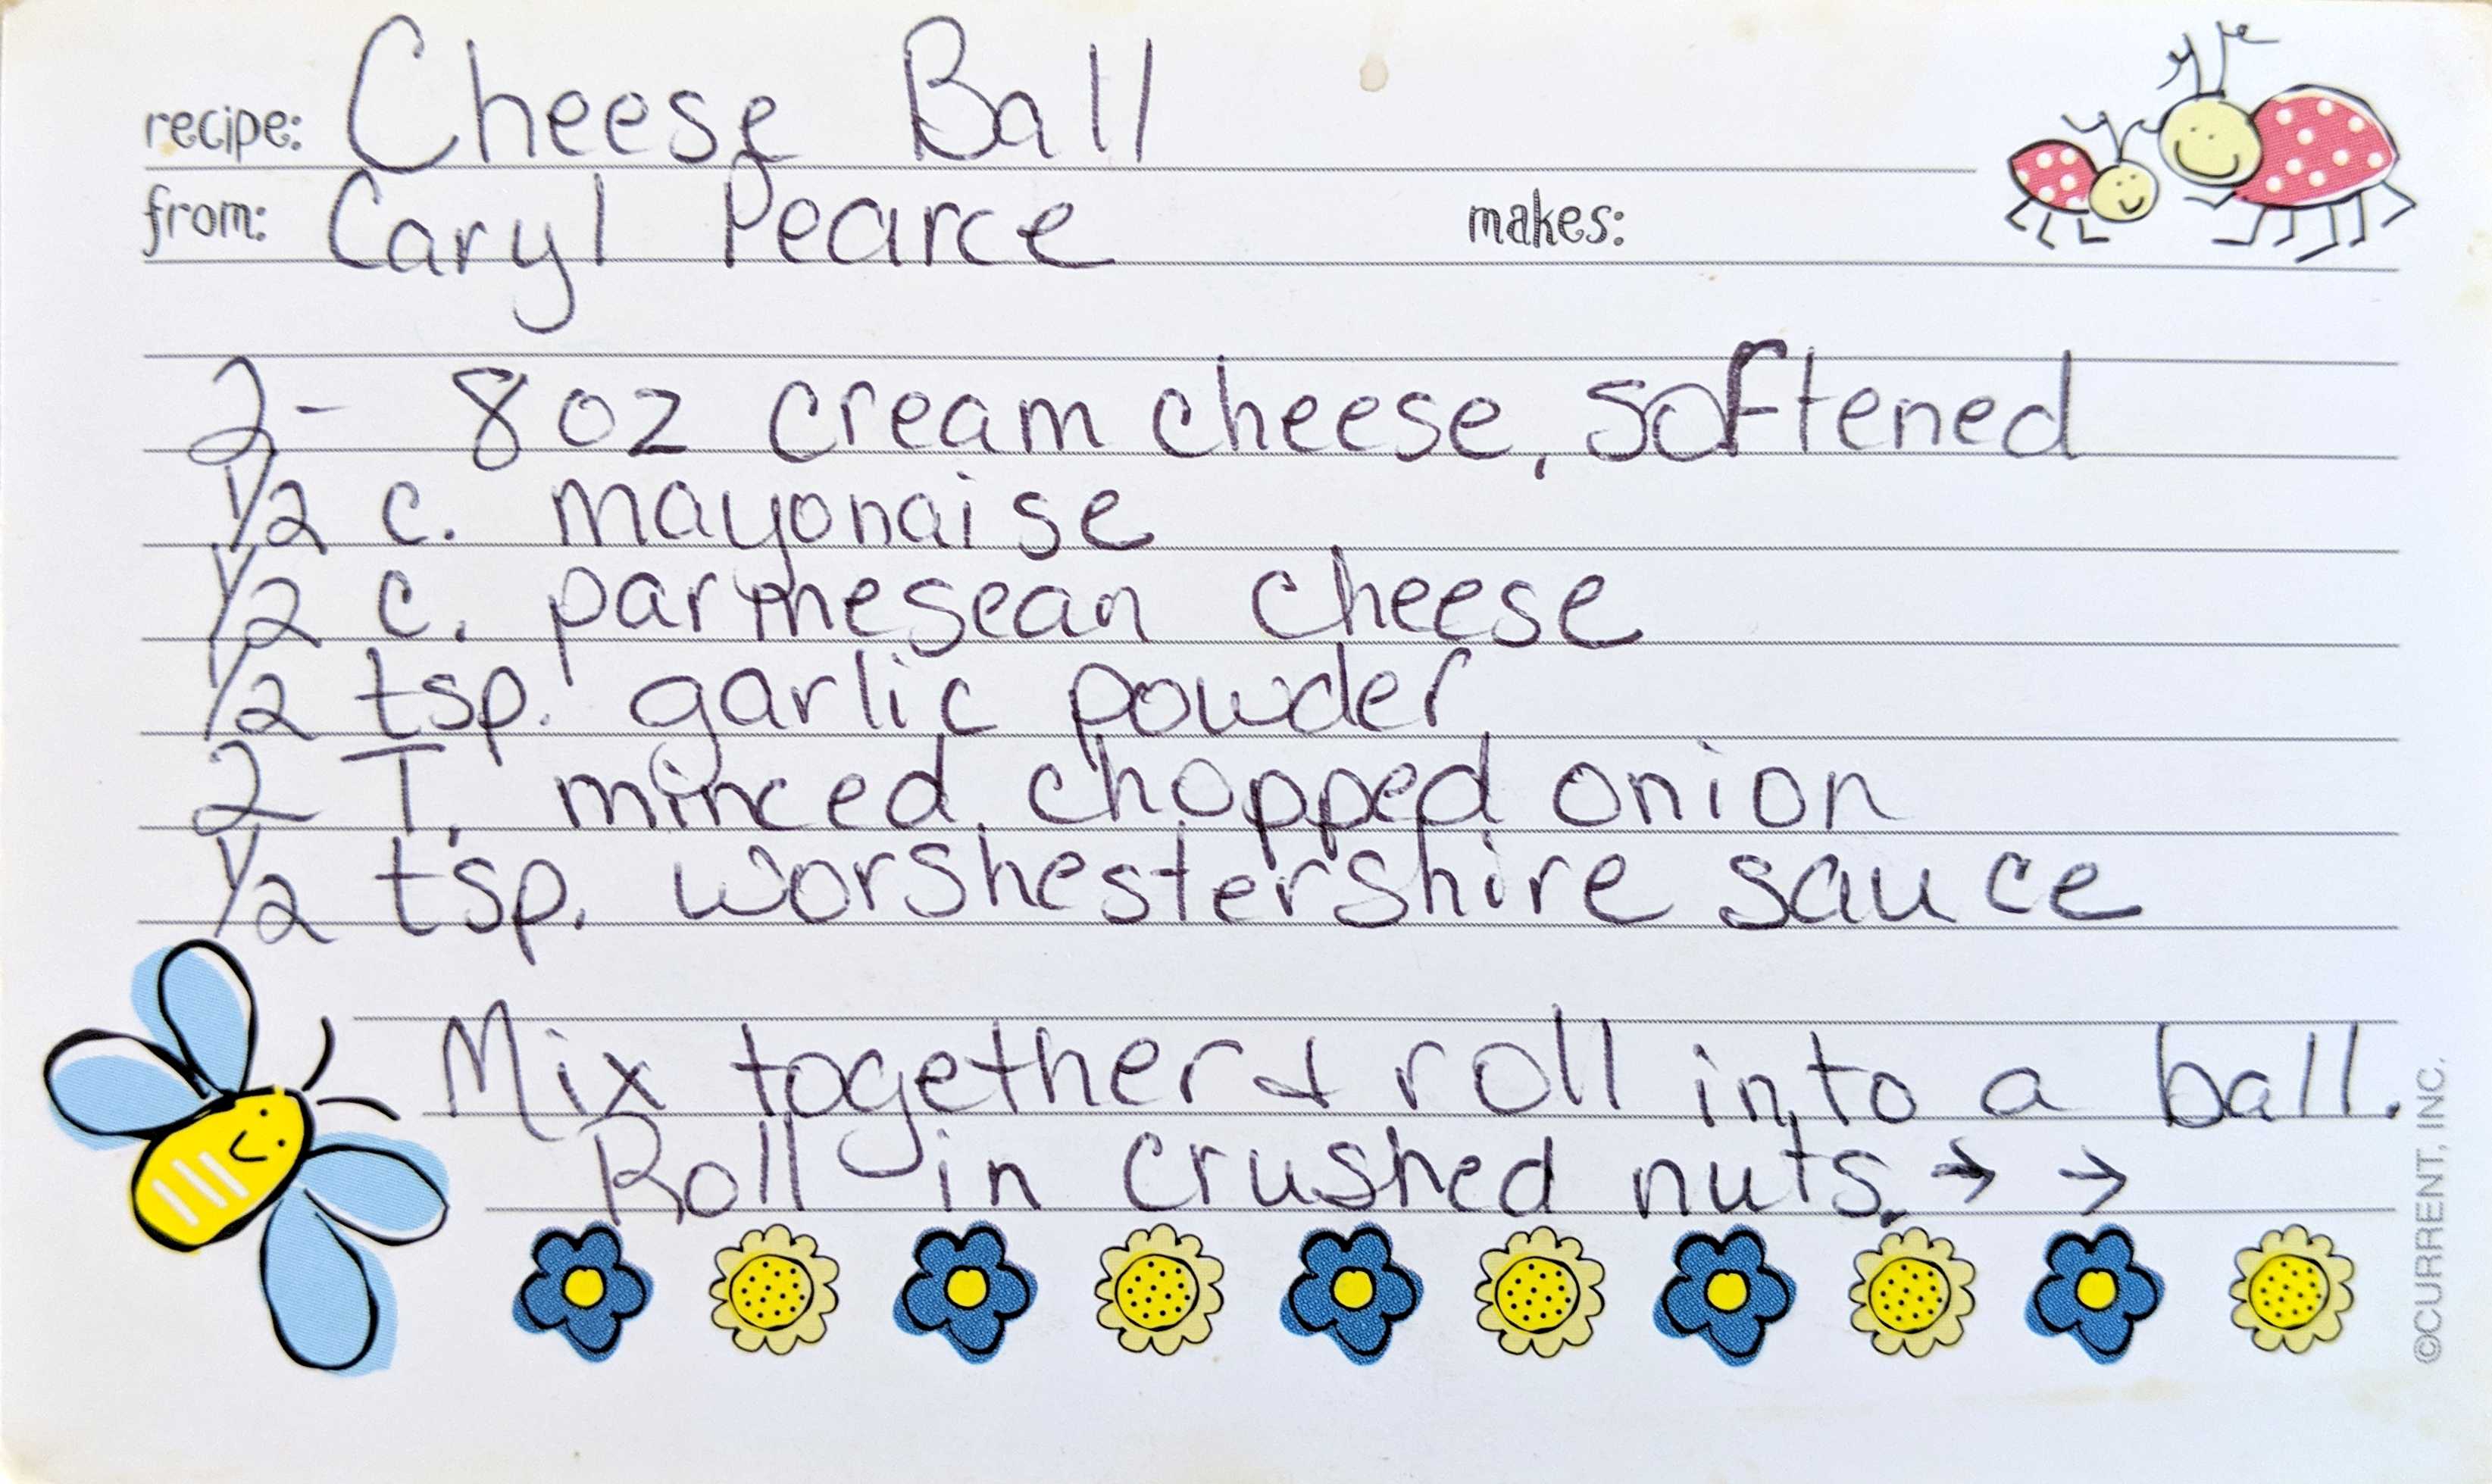 recipe: Cheese Ball
from: Caryl Pearce makes:
2- 8 oz cream cheese, softened
1/2 c. mayonaise
1/2 c. parmesean cheese
1/2 tsp. garlic powder
2 T. minced, chopped onion
1/2 tsp. worshestershire sauce
Mix together & roll into a ball.
Roll in crushed nuts. → →
©CURRENT, INC.